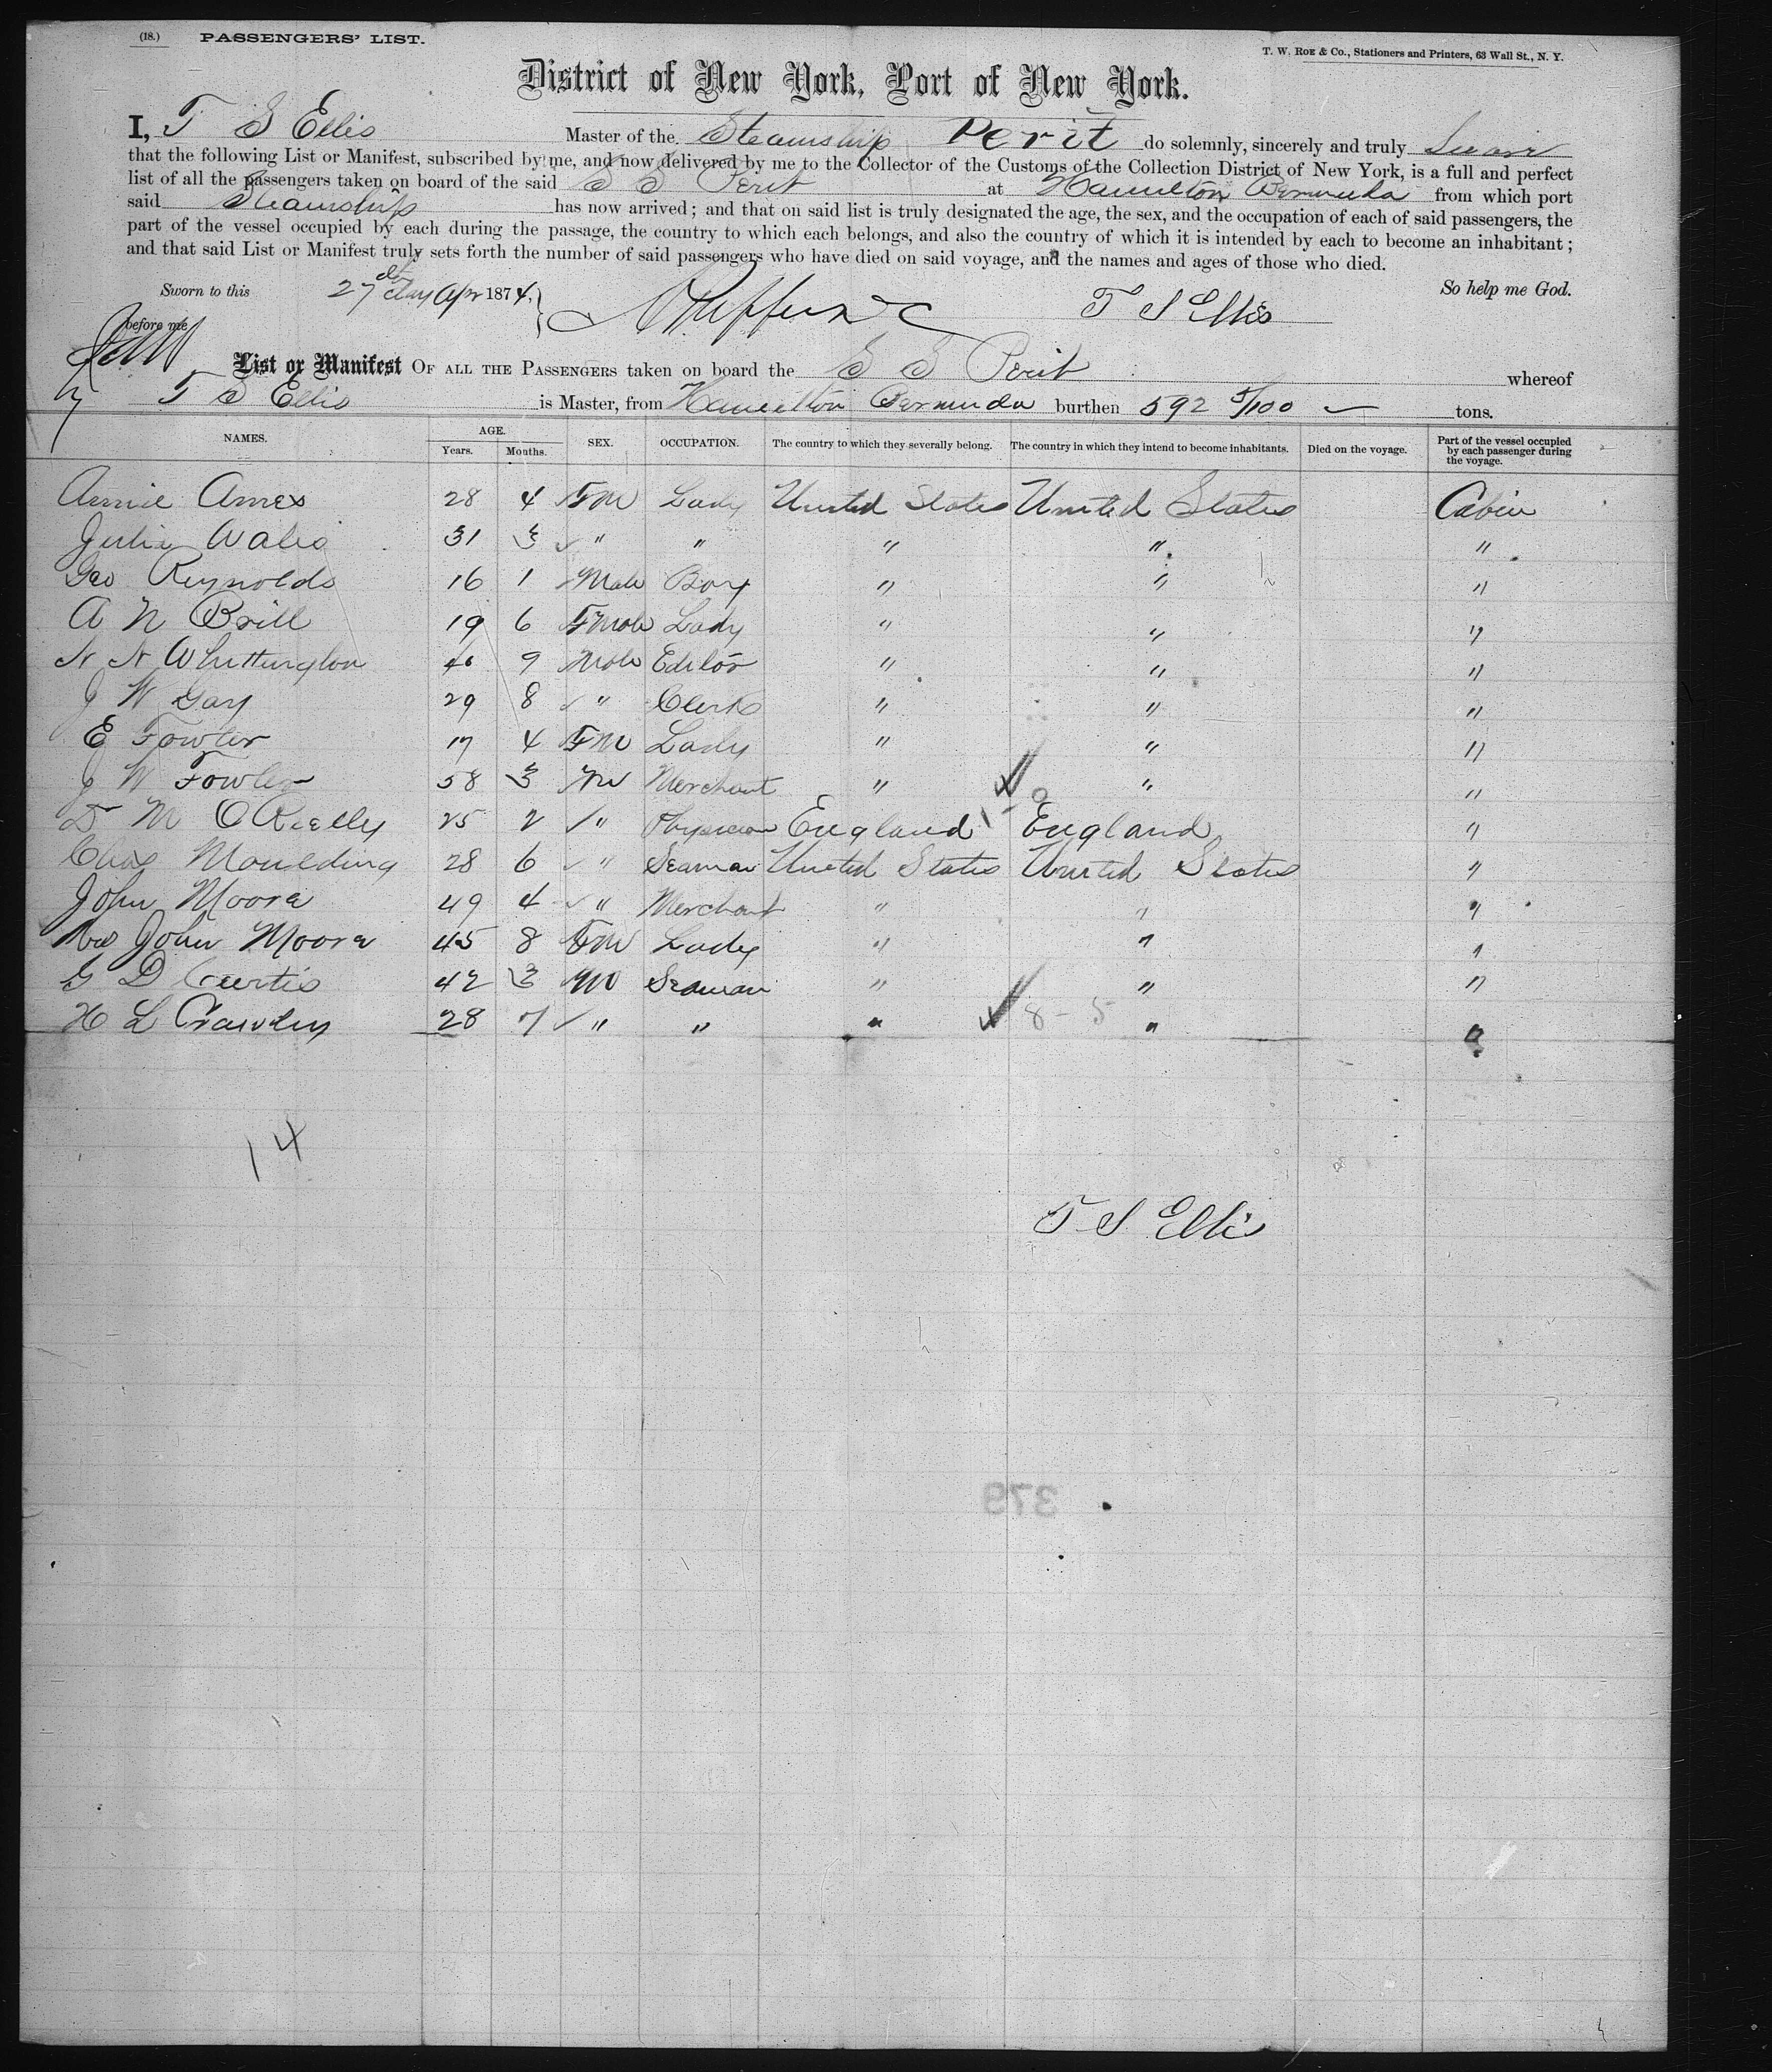 (18.) PASSENGERS' LIST.
T. W. ROE & Co., Stationers and Printers, 63 Wall St., N. Y.
District of New York, Port of New York.
I, T S Ellis Master of the Steamship Perit do solemnly, sincerely and truly Swear
that the following List or Manifest, subscribed by me, and now delivered by me to the Collector of the Customs of the Collection District of New York, is a full and perfect
list of all the passengers taken on board of the said S S Perit at Hamilton Bermuda from which port
said Steamship has now arrived; and that on said list is truly designated the age, the sex, and the occupation of each of said passengers, the
part of the vessel occupied by each during the passage, the country to which each belongs, and also the country of which it is intended by each to become an inhabitant;
and that said List or Manifest truly sets forth the number of said passengers who have died on said voyage, and the names and ages of those who died.
Sworn to this 27 day Apr 1874, T S Ellis So help me God.
before me
List or Manifest OF ALL THE PASSENGERS taken on board the S S Perit whereof
T S Ellis is Master, from Hamilton Bermuda burthen 592 5/100 tons.
NAMES. AGE. Years. Months. SEX. OCCUPATION. The country to which they severally belong. The country in which they intend to become inhabitants. Died on the voyage. Part of the vessel occupied by each passenger during the voyage.
Annie Ames 28 4 FM Lady United States United States Cabin
Julia Wales 31 3 " " " " "
Geo Reynolds 16 1 Male Boy " " "
A N Brill 19 6 Fmale Lady " " "
N N Whittington 46 9 Male Editor " " "
J W Gary 29 8 " Clerk " " "
E Fowler 17 4 FM Lady " " "
J W Fowler 58 3 M Merchant " " "
D M OReilly 25 2 " Physician England England "
Chas Moulding 28 6 " Seaman United States United States "
John Moore 49 4 " Merchant " " "
Mrs John Moore 45 8 FM Lady " " "
G D Curtis 42 3 M Seaman " " "
H L 28 7 " " " 8-5 " "
14
T S Ellis
379